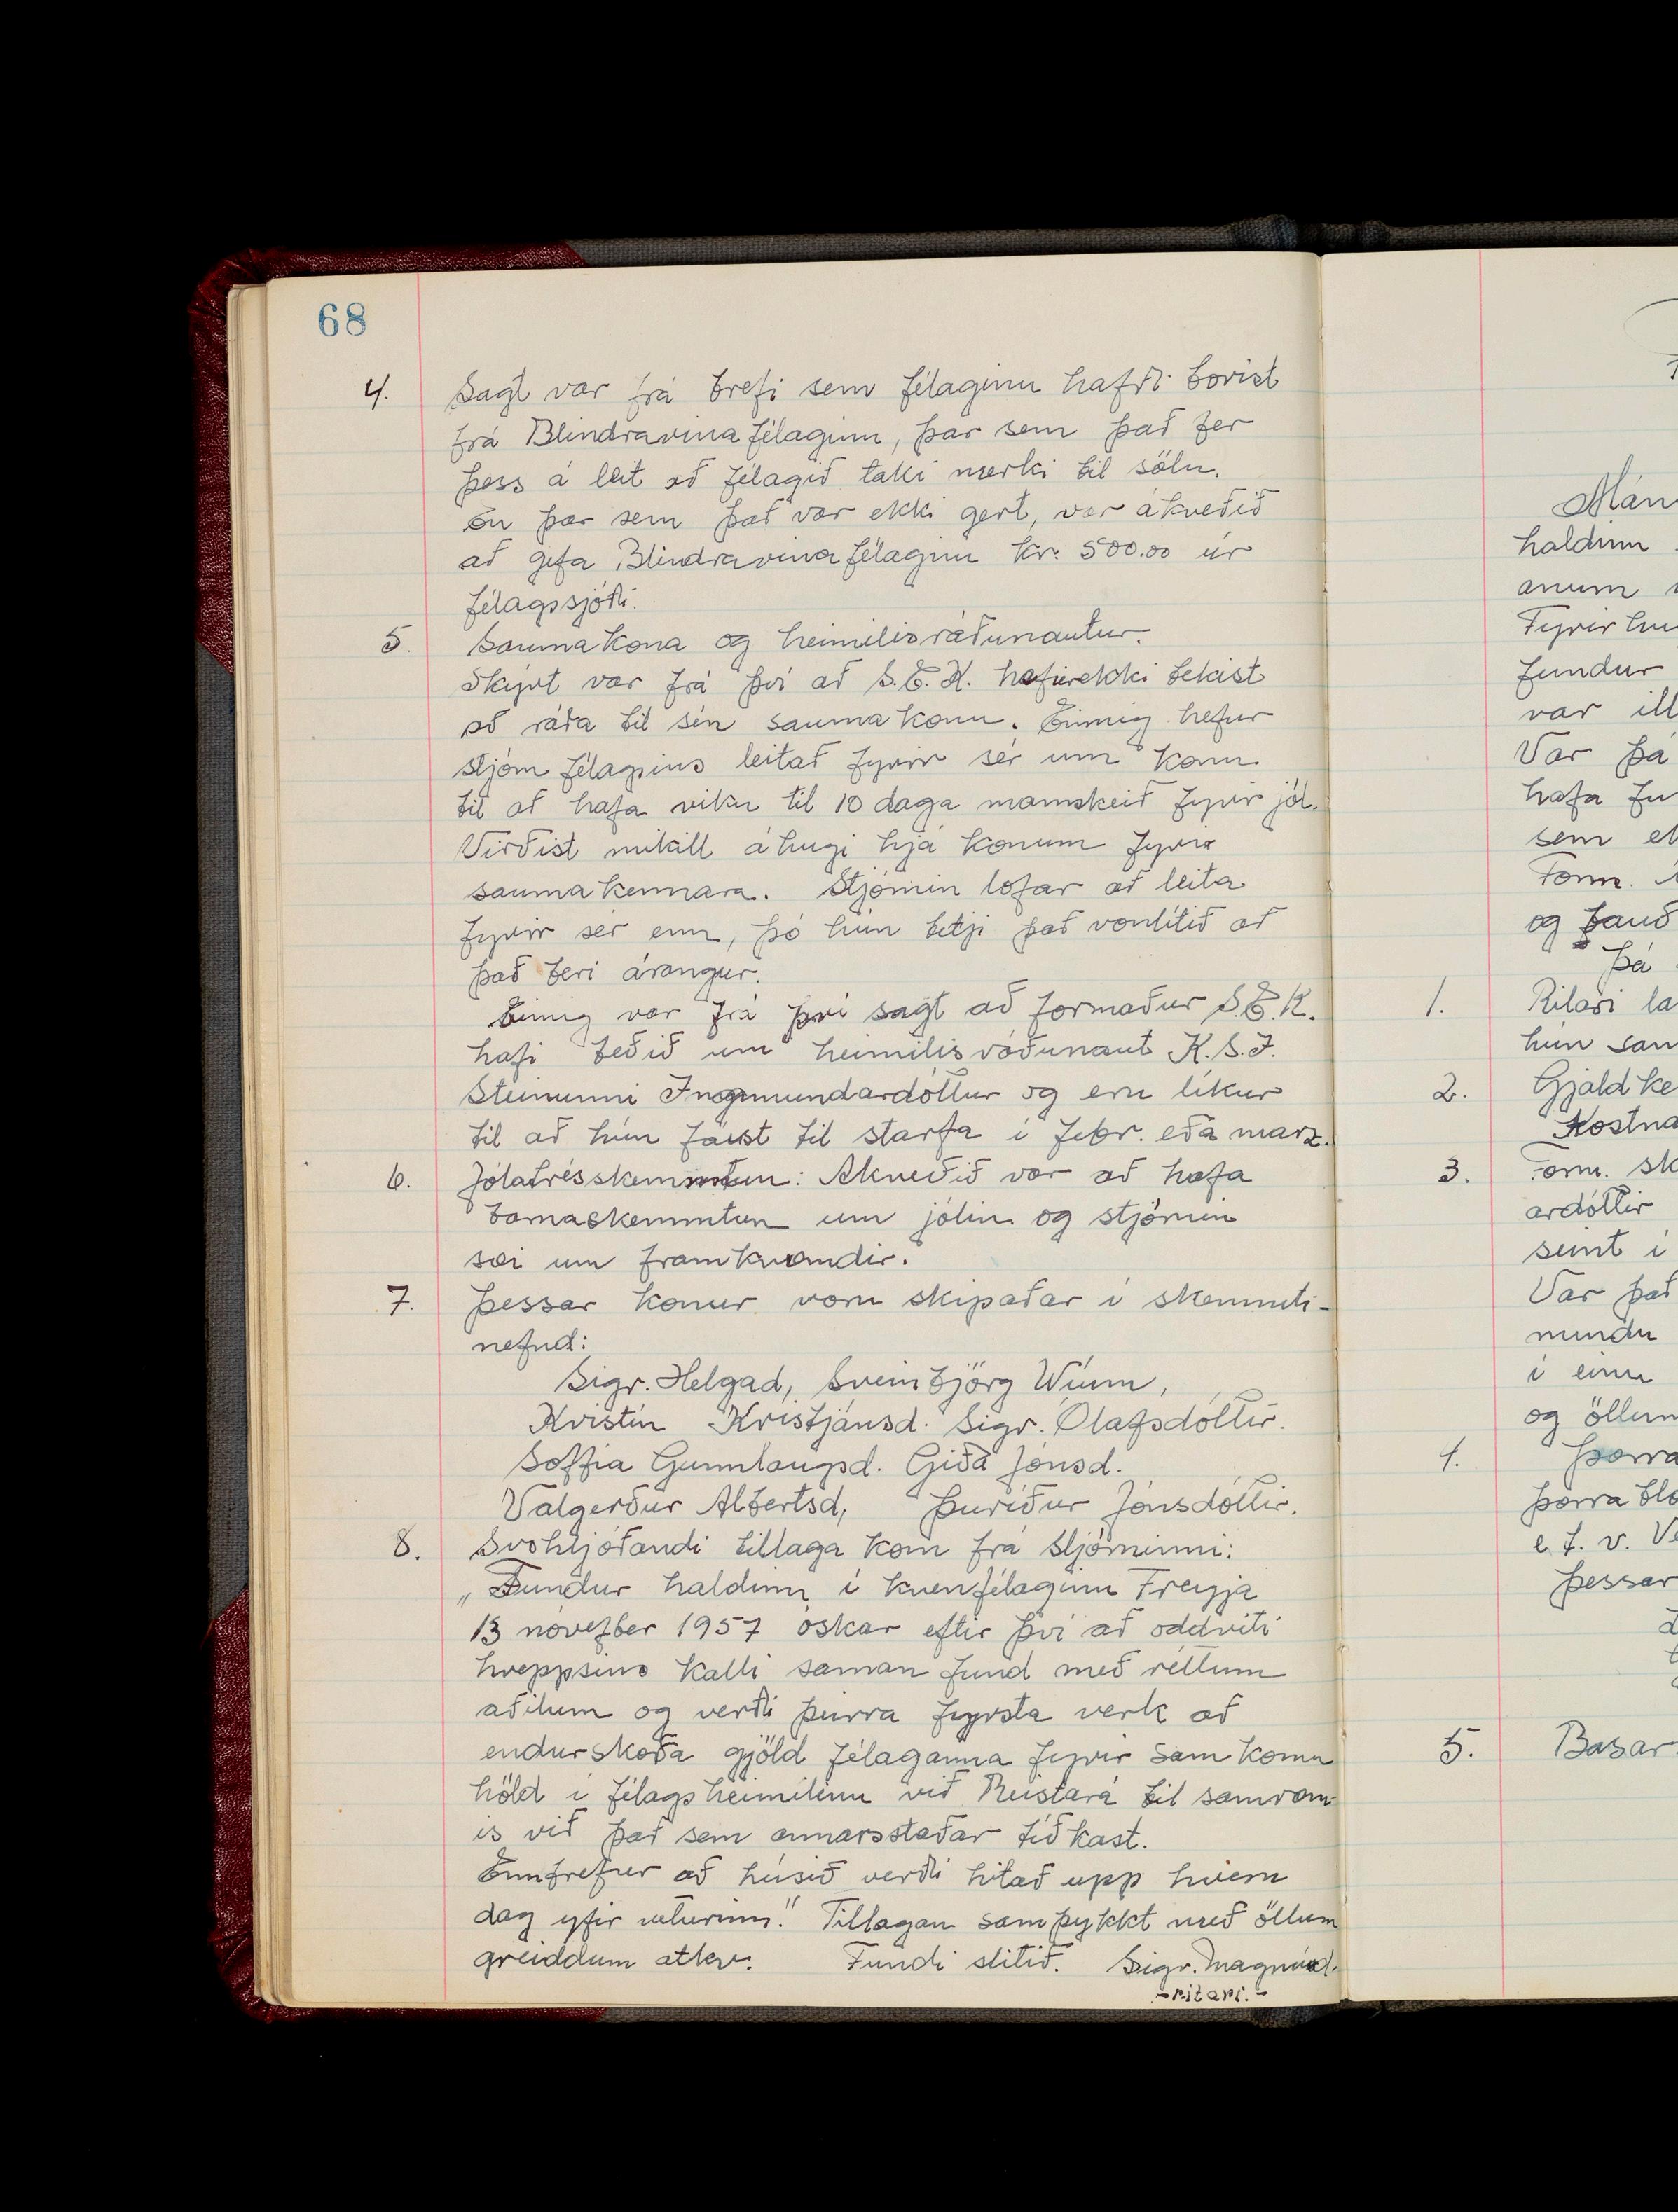 68
4. Sagt var frá bréfi sem félaginu hafði borist
frá Blindravinafélaginu, þar sem það fer
þess á leit að félagið taki merki til sölu.
En þar sem það var ekki gert, var ákveðið
að gefa Blindravinafélaginu kr. 500.00 úr
félagssjóði.
5. Saumakona og heimilisráðunautur.
Skýrt var frá því að S.B.K. hafi ekki tekist
að ráða til sín saumakonu. Einnig hefur
stjórn félagsins leitað fyrir sér um konu
til að hafa viku til 10 daga námskeið fyrir jól.
Virðist mikill áhugi hjá konum fyrir
saumakennara. Stjórnin lofar að leita
fyrir sér enn, þó hún telji það vonlítið að
það beri árangur.
Einnig var frá því sagt að formaður S.B.K.
hafi beðið um heimilisráðunaut K.S.Í.
Steinunni Ingimundardóttur og eru líkur
til að hún fáist til starfa í febr. eða marz.
6. Jólatrésskemmtun: Ákveðið var að hafa
barnaskemmtun um jólin og stjórnin
sæi um framkvæmdir.
7. Þessar konur voru skipaðar í skemmti-
nefnd:
Sigr. Helgad, Sveinbjörg Winm,
Kristín Kristjánsd. Sigr. Ólafsdóttir.
Soffía Gunnlaugsd. Gíða Jónsd.
Valgerður Albertsd, Þuríður Jónsdóttir.
8. Svohljóðandi tillaga kom frá stjórninni:
„Fundur haldinn í kvenfélaginu Freyja
13 november 1957 óskar eftir því að oddviti
hreppsins kalli saman fund með réttum
aðilum og verði þurra fyrsta verk að
endurskoða gjöld félaganna fyrir samkomu
höld í félagsheimilinu við Rústará til samræm
is við það sem annarsstaðar tíðkast.
Ennfrefur að húsið verði hitað upp hvern
dag yfir veturinn." Tillagan samþykkt með öllum
greiddum atkv. Fundi slitið. Sigr. Magnúsd.
- ritari. -
Mán
haldinn
anum
Fyrir hu
fundur
var ill
Var þá
hafa fu
sem ek
Form.
og bauð
Þá
1. Ritari la
hún san
2. Gjaldke
Kostna
3. Form. sk
ardóttir
seint í
Var það
mundu
í einu
og öllum
4. Þorra
Þorrabló
e.t.v. Ve
Þessar
5. Basar